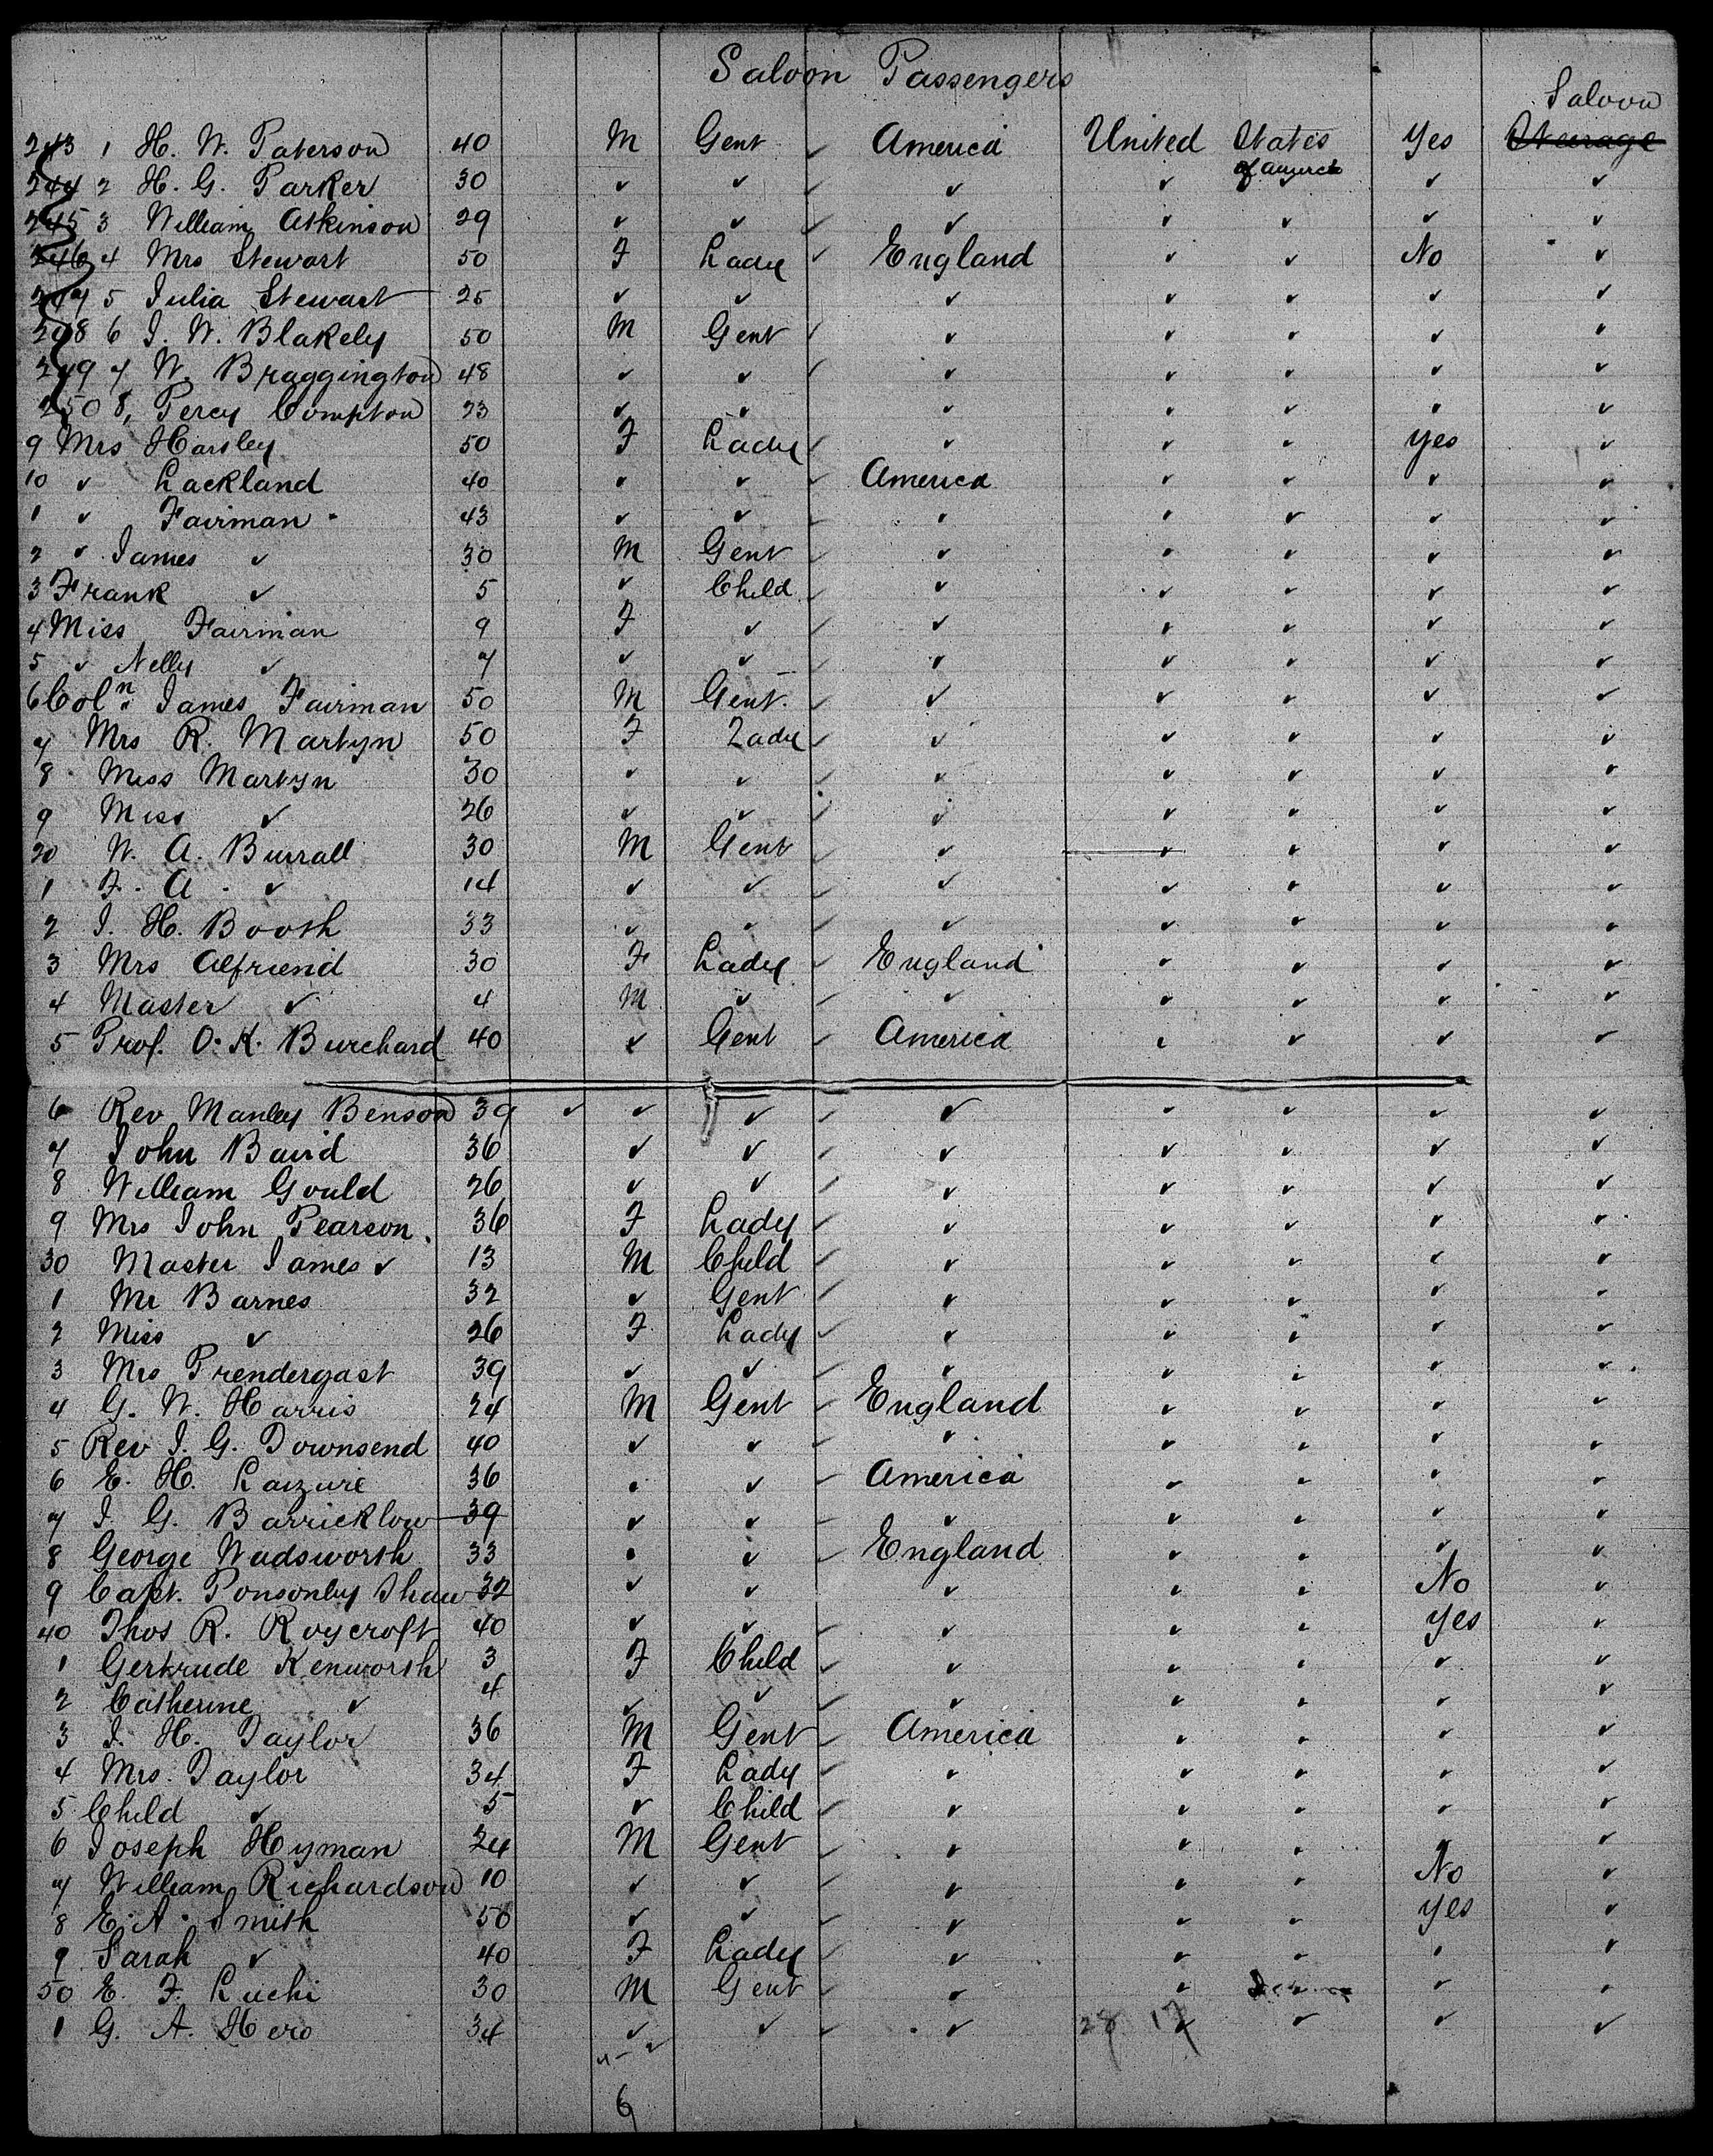 Saloon Passengers
Saloon
243 1 H. W. Paterson 40 M Gent ✓ America United States Yes Steerage
of America
244 2 H. G. Parker 30 ✓ ✓ ✓ ✓ ✓ ✓ ✓
245 3 William Atkinson 29 ✓ ✓ ✓ ✓ ✓ ✓ ✓ ✓
246 4 Mrs Stewart 50 F Lady ✓ England ✓ ✓ No ✓
247 5 Julia Stewart 25 ✓ ✓ ✓ ✓ ✓ ✓ ✓
248 6 J. W. Blakely 50 M Gent ✓ ✓ ✓ ✓ ✓ ✓
249 7 W. Braggington 48 ✓ ✓ ✓ ✓ ✓ ✓ ✓ ✓
250 8 Percy Compton 23 ✓ ✓ ✓ ✓ ✓ ✓ ✓
9 Mrs Harsley 50 F Lady ✓ ✓ ✓ ✓ Yes ✓
10 ✓ Lackland 40 ✓ ✓ ✓ America ✓ ✓ ✓ ✓
1 ✓ Fairman 43 ✓ ✓ ✓ ✓ ✓ ✓ ✓ ✓
2 ✓ James ✓ 30 M Gent ✓ ✓ ✓ ✓ ✓ ✓
3 Frank ✓ 5 ✓ Child ✓ ✓ ✓ ✓ ✓ ✓
4 Miss Fairman 9 F ✓ ✓ ✓ ✓ ✓ ✓ ✓
5 ✓ Nelly ✓ 7 ✓ ✓ ✓ ✓ ✓ ✓ ✓ ✓
6 Coln James Fairman 50 M Gent ✓ ✓ ✓ ✓ ✓ ✓
7 Mrs R. Martyn 50 F Lady ✓ ✓ ✓ ✓ ✓ ✓
8 Miss Martyn 30 ✓ ✓ ✓ ✓ ✓ ✓ ✓ ✓
9 Miss ✓ 26 ✓ ✓ ✓ ✓ ✓ ✓ ✓ ✓
20 W. A. Burrall 30 M Gent ✓ ✓ ✓ ✓ ✓ ✓
1 F. A. ✓ 14 ✓ ✓ ✓ ✓ ✓ ✓ ✓ ✓
2 J. H. Booth 33 ✓ ✓ ✓ ✓ ✓ ✓ ✓ ✓
3 Mrs Alfriend 30 F Lady ✓ England ✓ ✓ ✓ ✓
4 Master ✓ 4 M ✓ ✓ ✓ ✓ ✓ ✓ ✓
5 Prof. O. K. Burchard 40 ✓ Gent ✓ America ✓ ✓ ✓ ✓
6 Rev Manley Benson 39 ✓ ✓ ✓ ✓ ✓ ✓ ✓ ✓ ✓
7 John Baird 36 ✓ ✓ ✓ ✓ ✓ ✓ ✓ ✓
8 William Gould 26 ✓ ✓ ✓ ✓ ✓ ✓ ✓ ✓
9 Mrs John Pearson 36 F Lady ✓ ✓ ✓ ✓ ✓ ✓
30 Master James ✓ 13 M Child ✓ ✓ ✓ ✓ ✓ ✓
1 Mr Barnes 32 ✓ Gent ✓ ✓ ✓ ✓ ✓ ✓
2 Miss ✓ 26 F Lady ✓ ✓ ✓ ✓ ✓ ✓
3 Mrs Prendergast 39 ✓ ✓ ✓ ✓ ✓ ✓ ✓ ✓
4 G. W. Harris 24 M Gent ✓ England ✓ ✓ ✓ ✓
5 Rev J. G. Townsend 40 ✓ ✓ ✓ ✓ ✓ ✓ ✓ ✓
6 E. H. Laizure 36 ✓ ✓ ✓ America ✓ ✓ ✓ ✓
7 J. G. Barricklow 39 ✓ ✓ ✓ ✓ ✓ ✓ ✓ ✓
8 George Wadsworth 33 ✓ ✓ ✓ England ✓ ✓ ✓ ✓
9 Capt. Ponsonby Shaw 32 ✓ ✓ ✓ ✓ ✓ ✓ No ✓
40 Thos R. Roycroft 40 ✓ ✓ ✓ ✓ ✓ ✓ Yes ✓
1 Gertrude Kenworth 3 F Child ✓ ✓ ✓ ✓ ✓ ✓
2 Catherine ✓ 4 ✓ ✓ ✓ ✓ ✓ ✓ ✓ ✓
3 J. H. Taylor 36 M Gent ✓ America ✓ ✓ ✓ ✓
4 Mrs. Taylor 34 F Lady ✓ ✓ ✓ ✓ ✓ ✓
5 Child ✓ 5 ✓ Child ✓ ✓ ✓ ✓ ✓ ✓
6 Joseph Hyman 24 M Gent ✓ ✓ ✓ ✓ ✓ ✓
7 William Richardson 10 ✓ ✓ ✓ ✓ ✓ ✓ No ✓
8 E. A. Smith 50 ✓ ✓ ✓ ✓ ✓ ✓ Yes ✓
9 Sarah ✓ 40 F Lady ✓ ✓ ✓ ✓ ✓ ✓
50 E. F. Luchi 30 M Gent ✓ ✓ ✓ ✓ ✓
1 G. A. Hero 34 ✓ ✓ ✓ ✓ 28 17 ✓ ✓ ✓ ✓
6